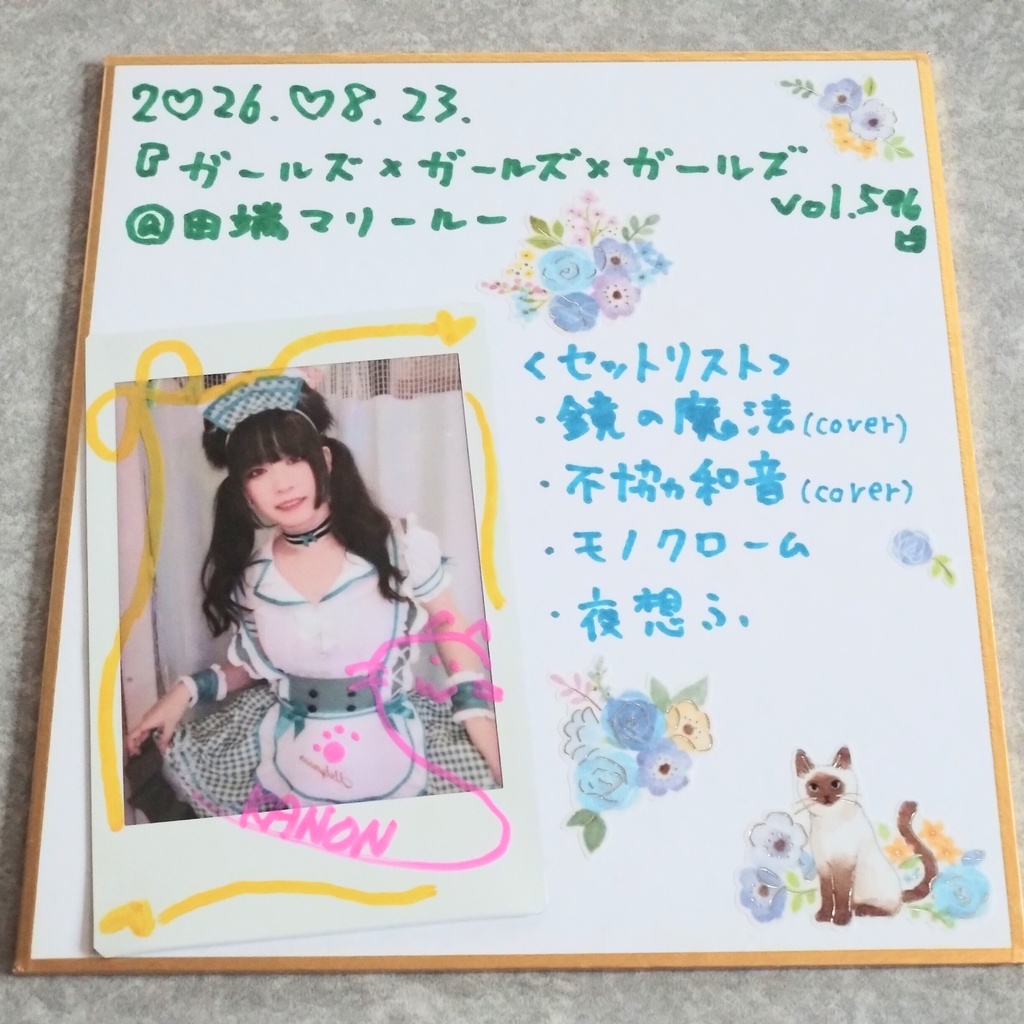 2♡26.♡8.23.
『ガールズ×ガールズ×ガールズ
vol.596』
@田端マリールー
<セットリスト>
・鏡の魔法(cover)
・不協和音(cover)
・モノクローム
・夜想ふ、
KANON